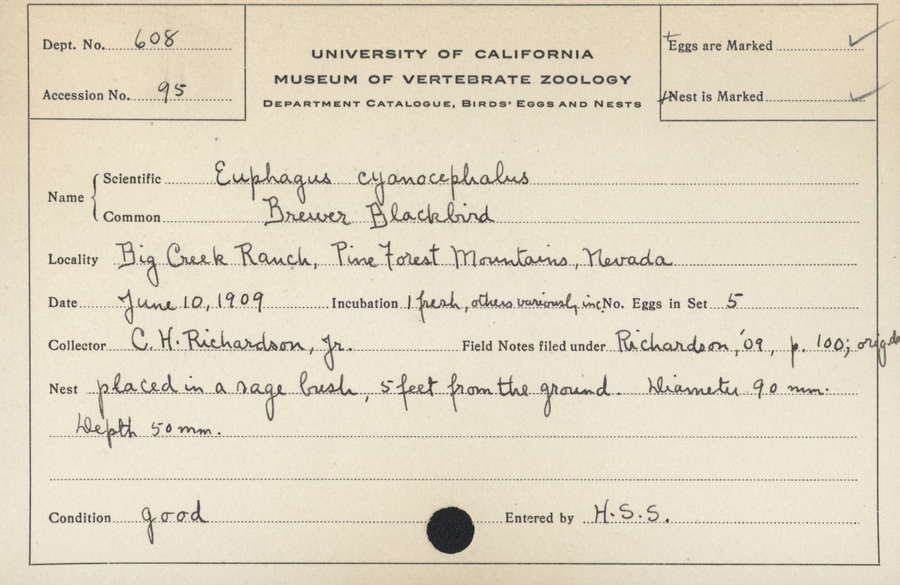 Dept. No. 608
Accession No. 95
UNIVERSITY OF CALIFORNIA
MUSEUM OF VERTEBRATE ZOOLOGY
DEPARTMENT CATALOGUE, BIRDS' EGGS AND NESTS
Eggs are Marked ✓
Nest is Marked ✓
Name
Scientific Euphagus cyanocephalus
Common Brewer Blackbird
Locality Big Creek Ranch, Pine Forest Mountains, Nevada
Date June 10, 1909 Incubation 1 fresh, others variously inc. No. Eggs in Set 5
Collector C. H. Richardson, Jr. Field Notes filed under Richardson, '09, p. 100; orig.
Nest placed in a sage bush, 5 feet from the ground. Diameter 90 mm.
Depth 50 mm.
Condition good Entered by H.S.S.